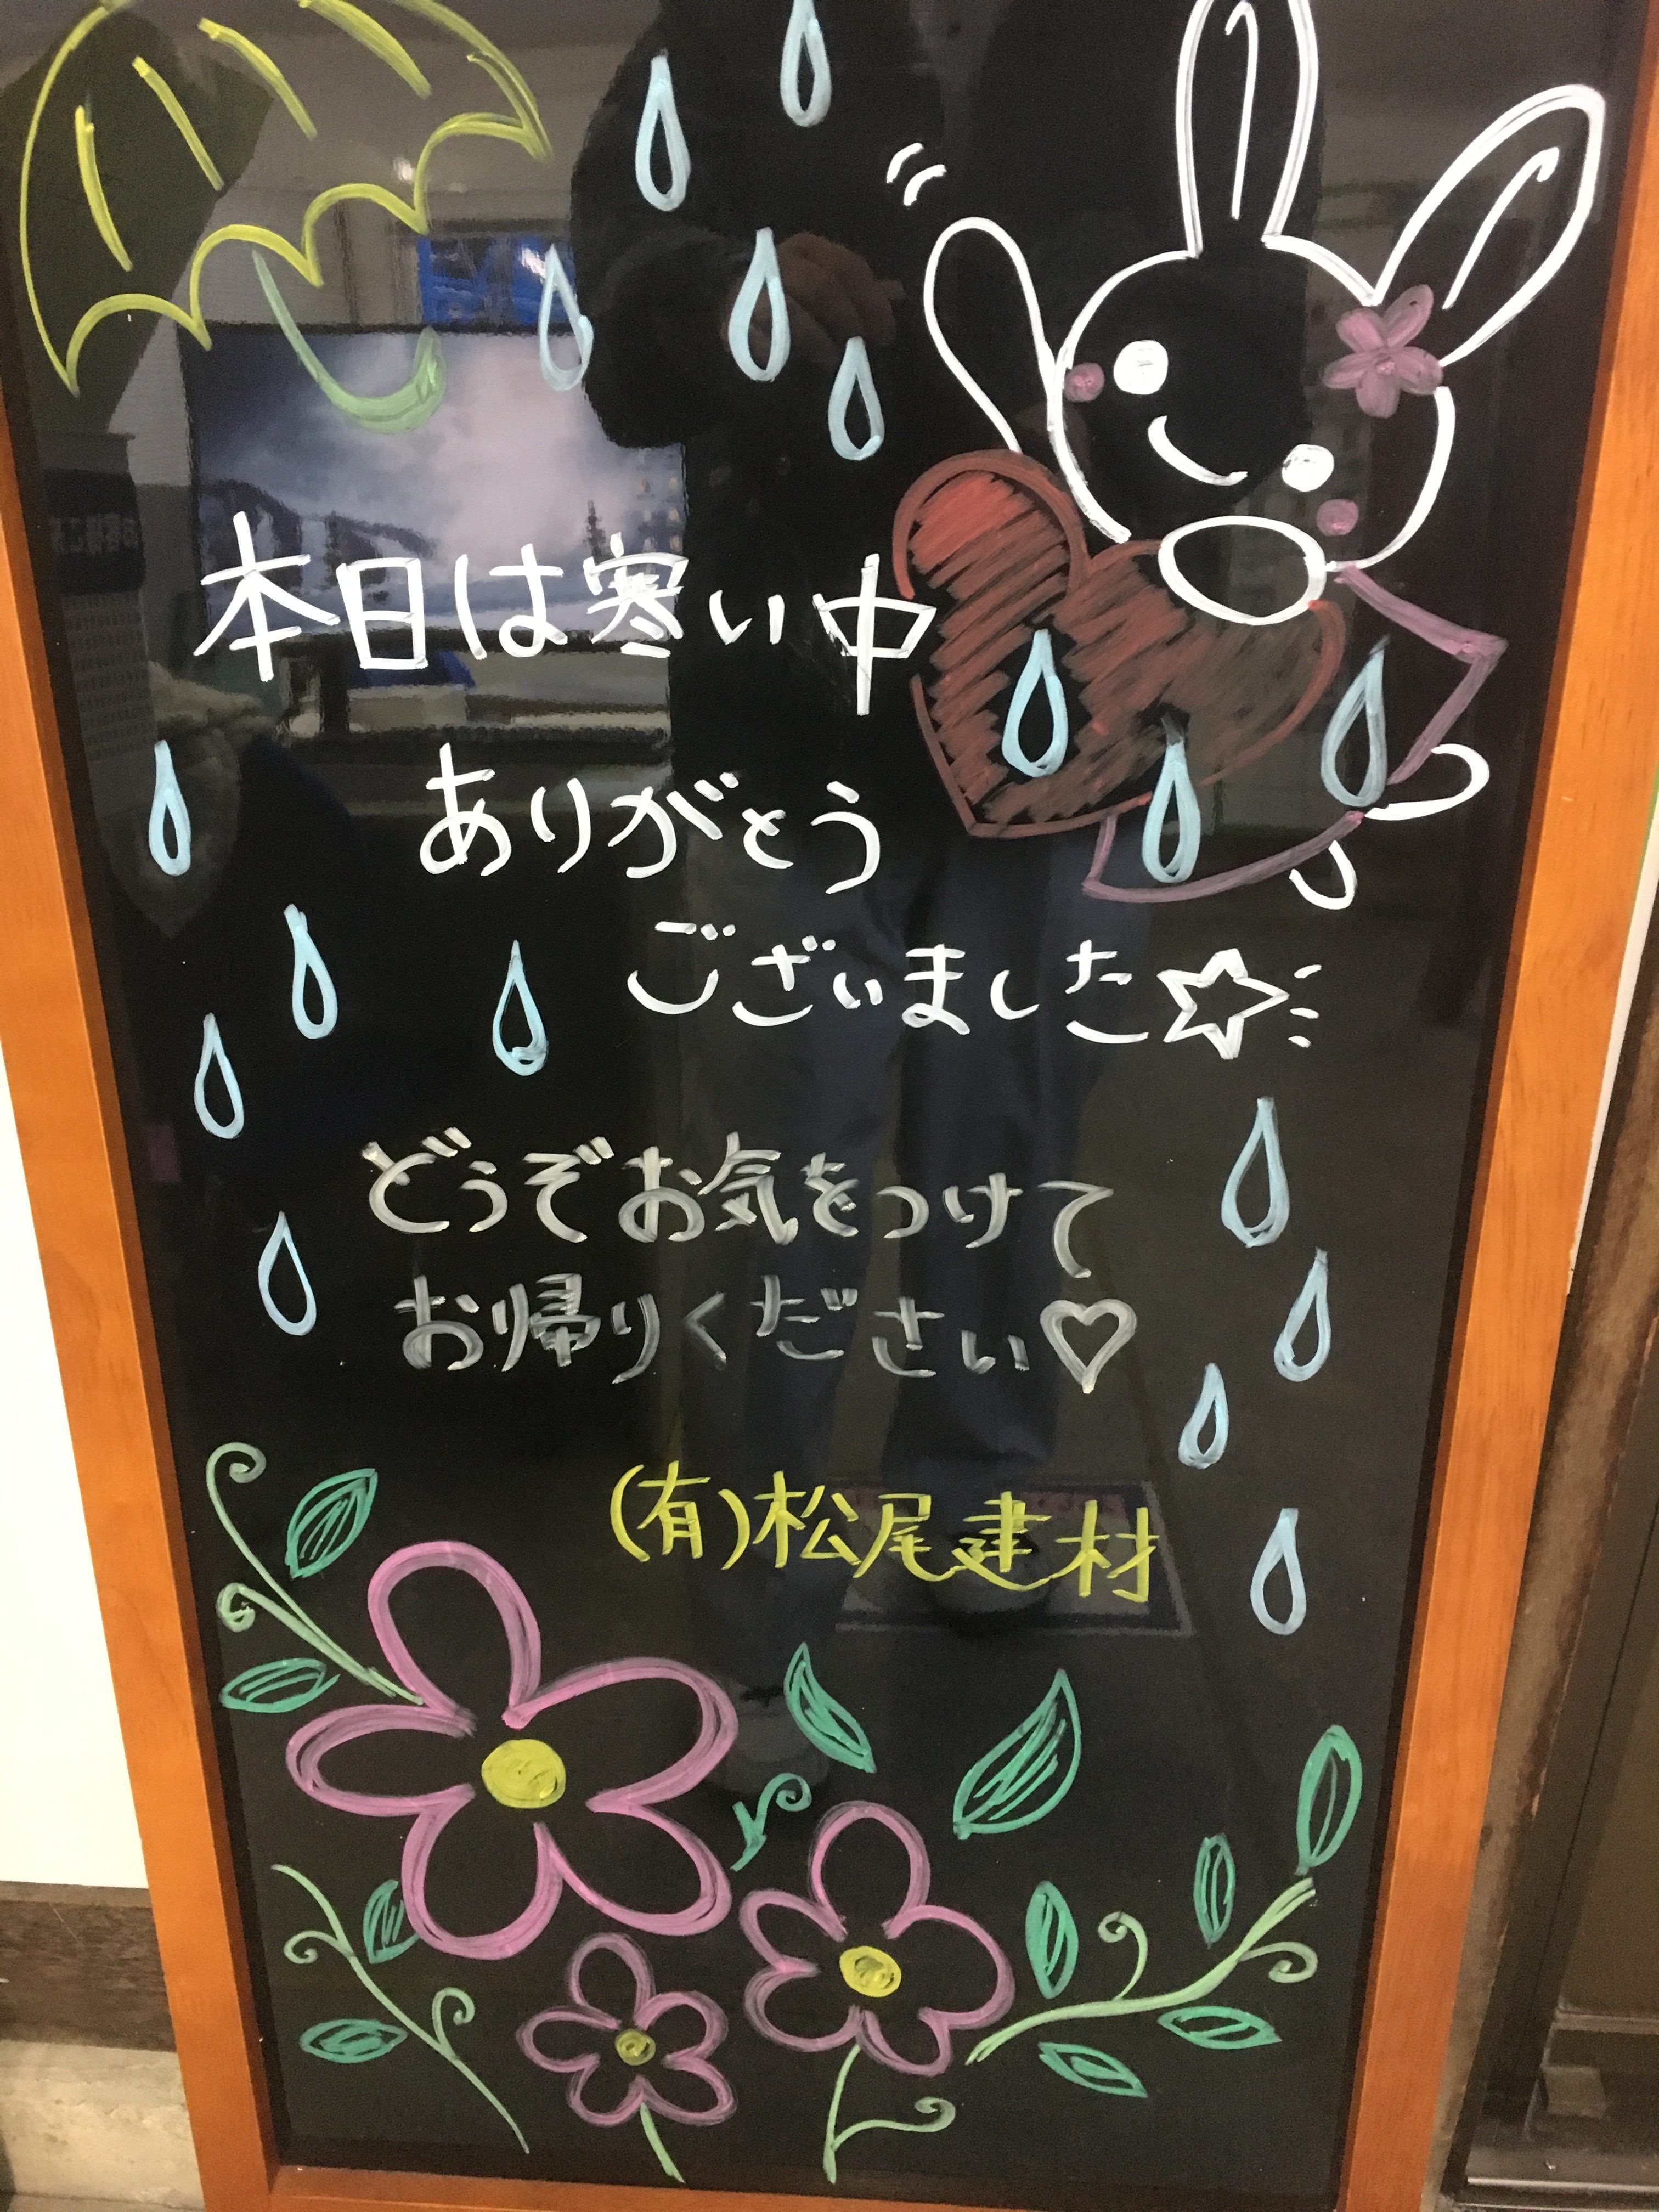 本日は寒い中
ありがとう
ございました☆
どうぞお気をつけて
お帰りください♡
(有)松尾建材